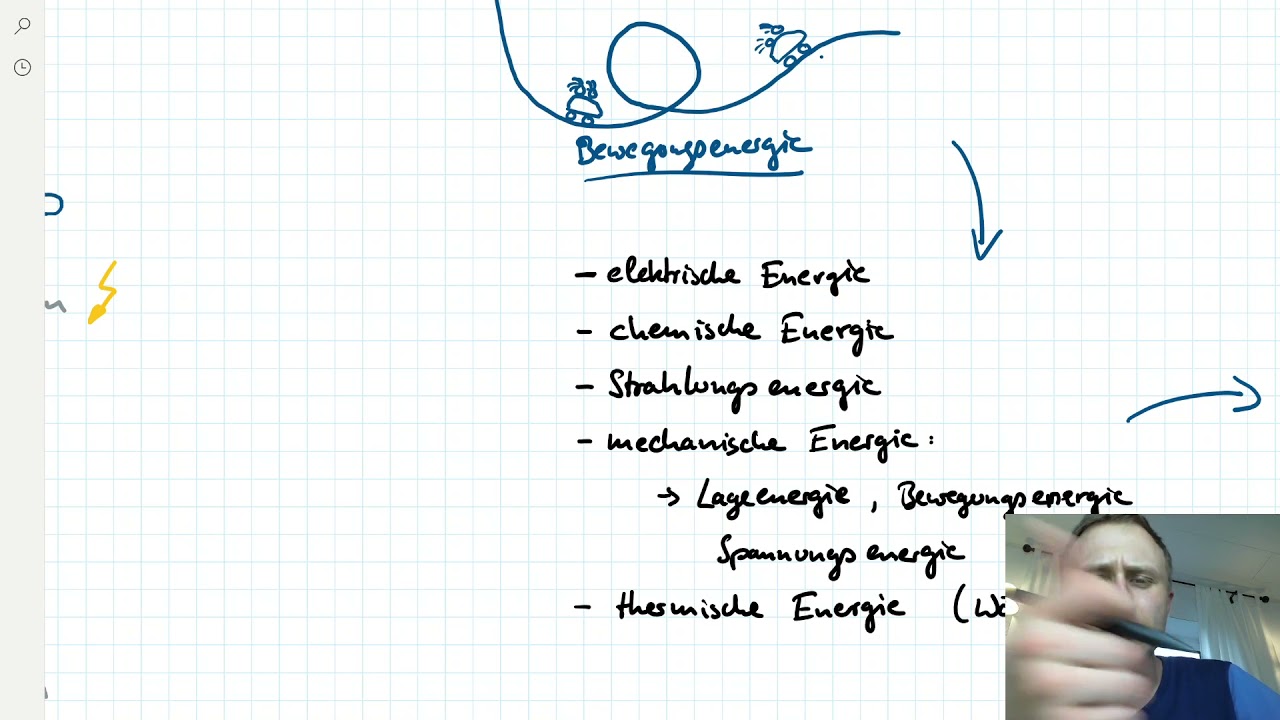 Bewegungsenergie
- elektrische Energie
- chemische Energie
- Strahlungsenergie
- mechanische Energie:
→ Lageenergie, Bewegungsenergie
Spannungsenergie
- thermische Energie (Wä